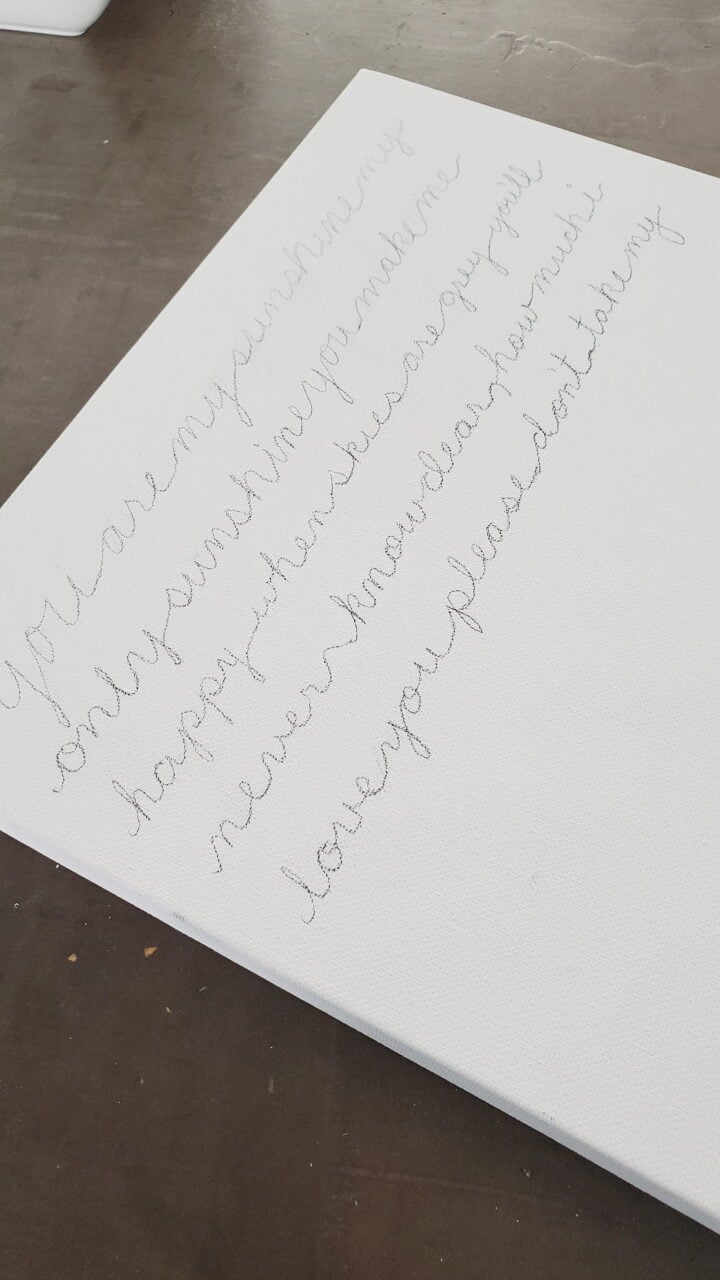 you are my sunshine my
only sunshine you make me
happy when skies are grey you'll
never know dear, how much i
love you please don't take my